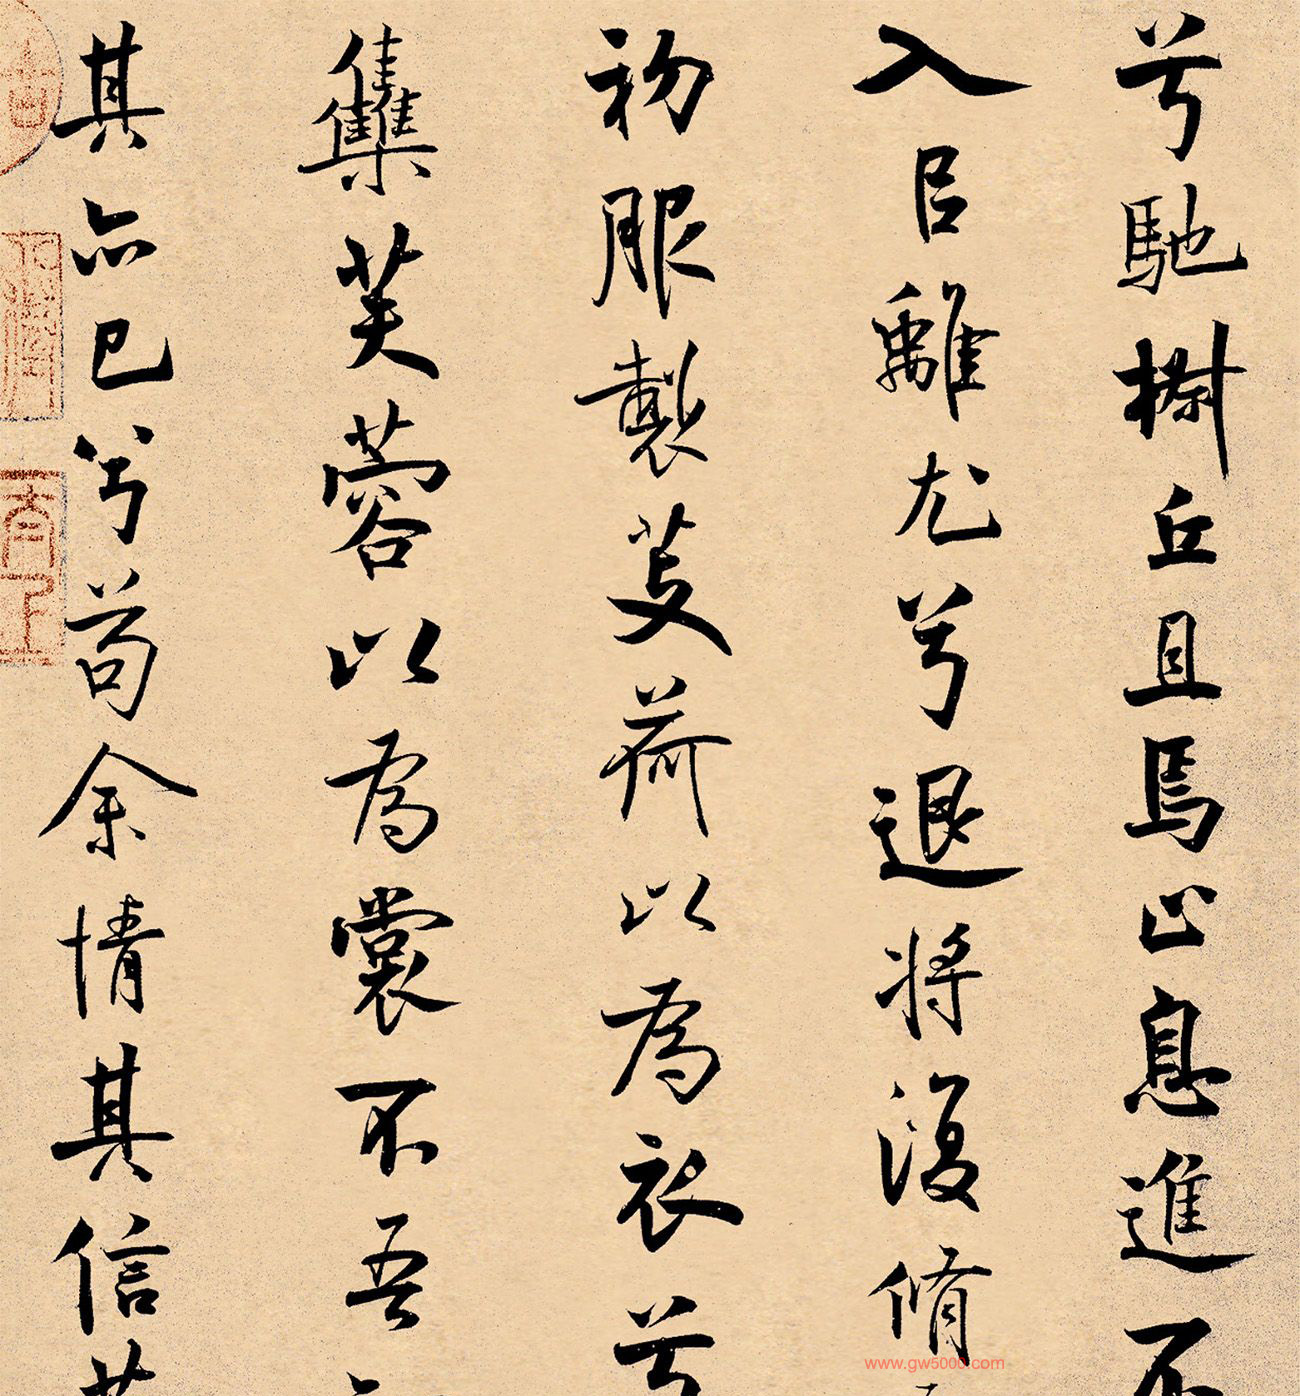 兮馳椒丘且焉止息進不
入㠯離尤兮退將復脩
初服製芰荷以為衣兮
雧芙蓉以為裳不吾
其亦已兮苟余情其信
www.gw5000.com